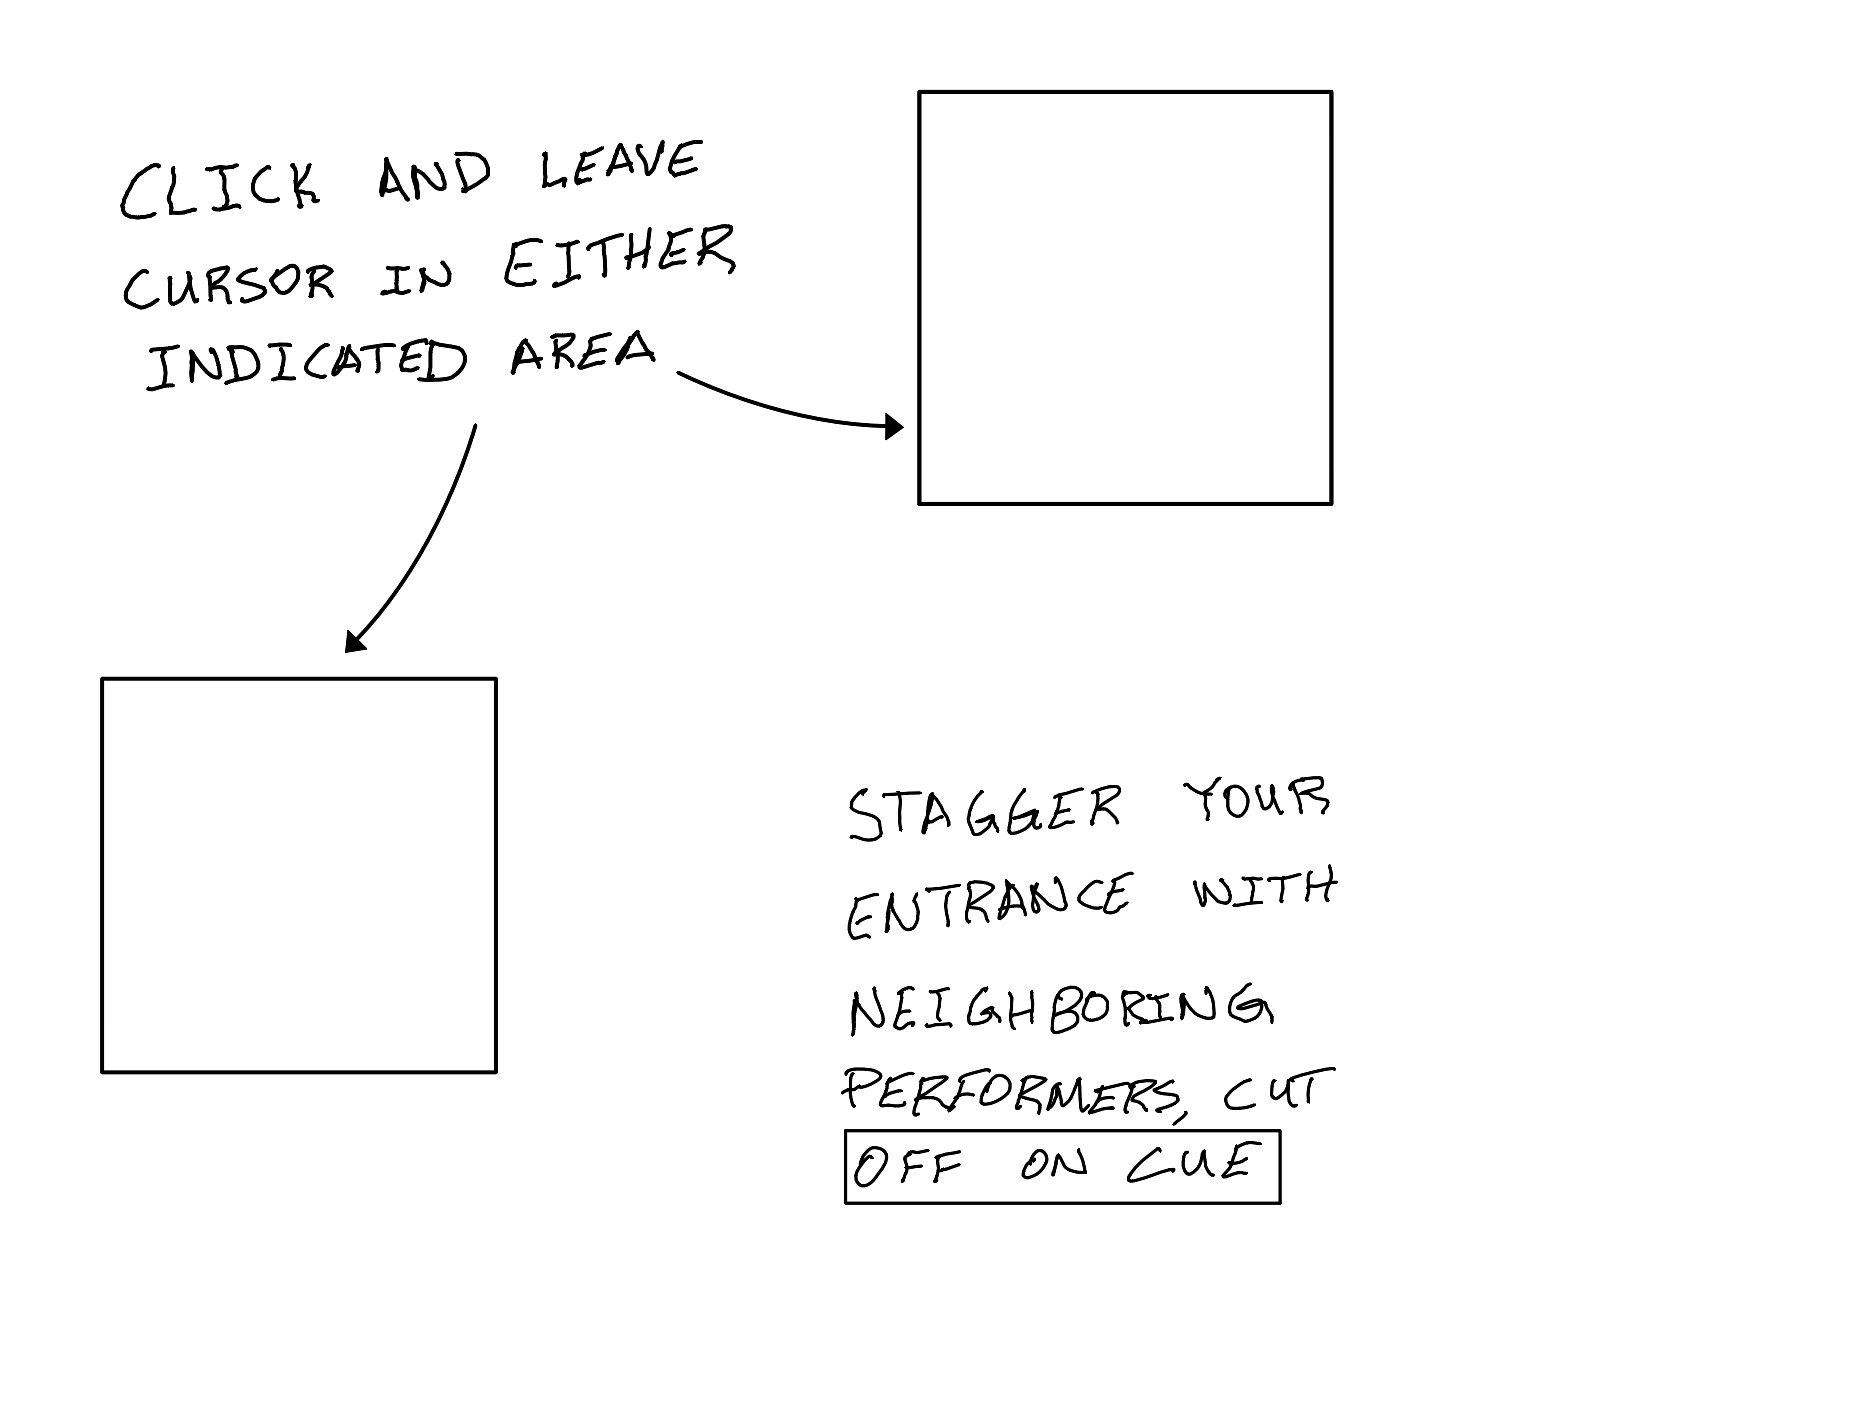 CLICK AND LEAVE
CURSOR IN EITHER
INDICATED AREA
STAGGER YOUR
ENTRANCE WITH
NEIGHBORING
PERFORMERS, CUT
OFF ON CUE